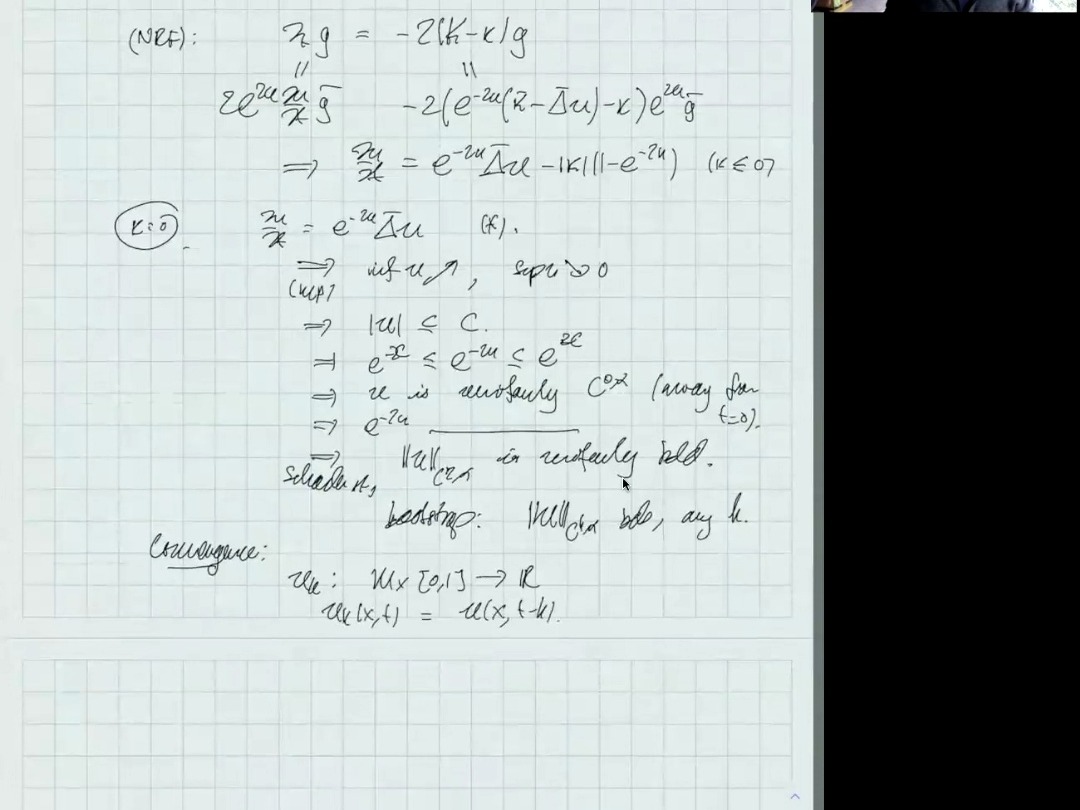 (NRF): ∂ₜg = -2(K-κ)g
|| ||
2e²ᵘ ∂u/∂t ḡ -2(e⁻²ᵘ(κ-Δ̄u)-κ)e²ᵘḡ
⟹ ∂u/∂t = e⁻²ᵘΔ̄u -|κ|(1-e⁻²ᵘ) (κ ≤ 0)
κ=0 ∂u/∂t = e⁻²ᵘΔ̄u (*).
⟹ inf u ↗, sup u ↘
⇒ |u| ≤ C.
⇒ e⁻²ᶜ ≤ e⁻²ᵘ ≤ e²ᶜ
⇒ u is uniformly C⁰,ᵅ (away from t=0).
⇒ e⁻²ᵘ
⇒ ||u||C²,ᵅ is uniformly bdd.
Schauder
bootstrap: ||u||Cᵏ,ᵅ bdd, any k.
Convergence:
uₖ: M×[0,1] → ℝ
uₖ(x,t) = u(x, t-k).